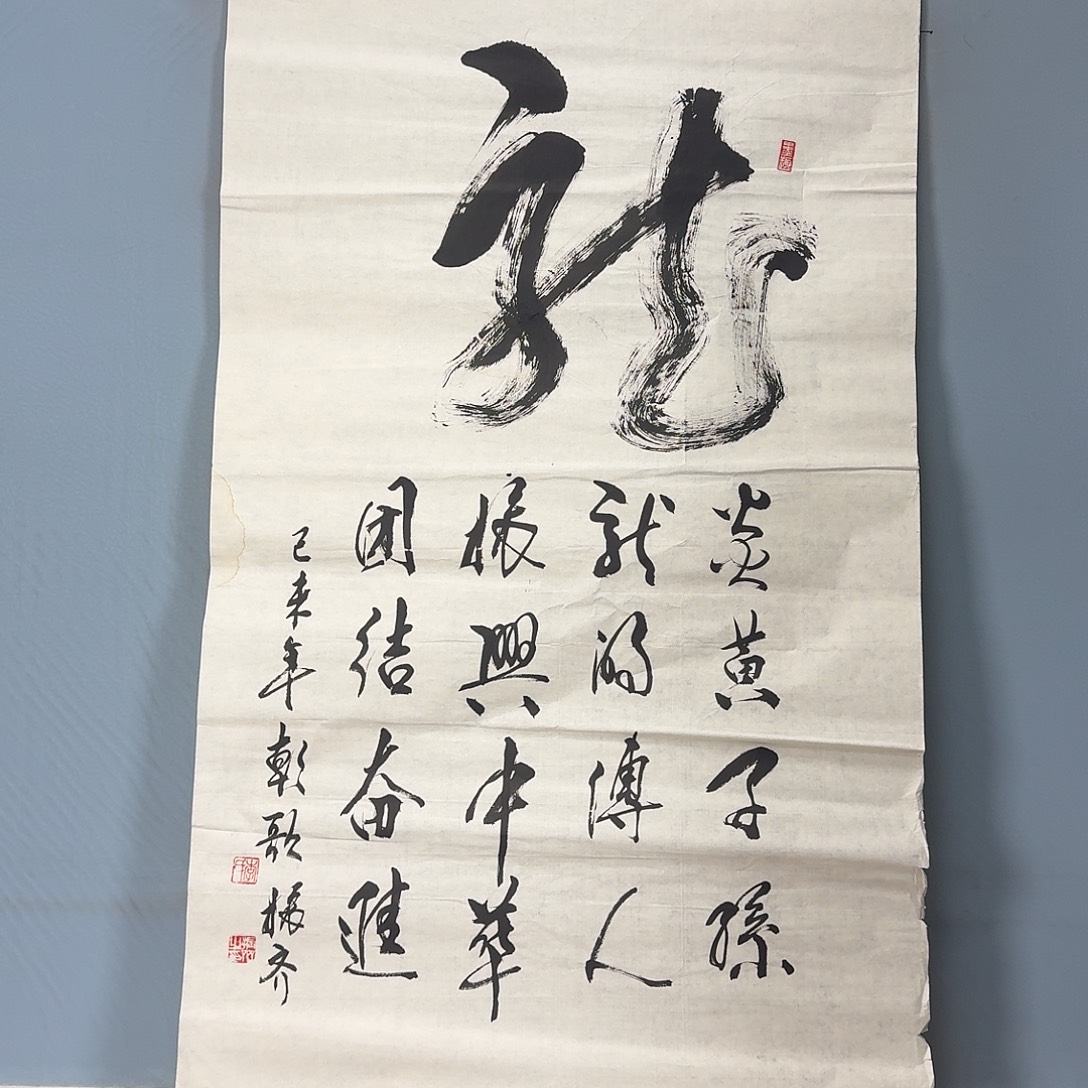 龍
炎黄子孫
龍的傳人
振興中華
团结奋進
己未年朝歌振齐